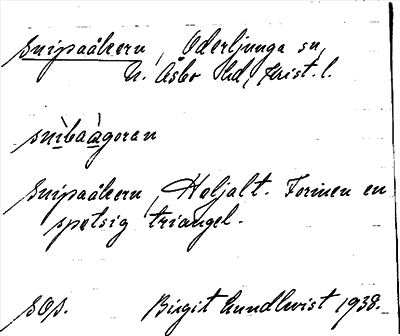 Snipaåkern, Oderljunga sn,
N. Åsbo hd, Krist. l.
snìbaàgoran
Snipaåkern, Heljalt. Formen en
spetsig triangel.
SOS. Birgit Lundkvist 1938.